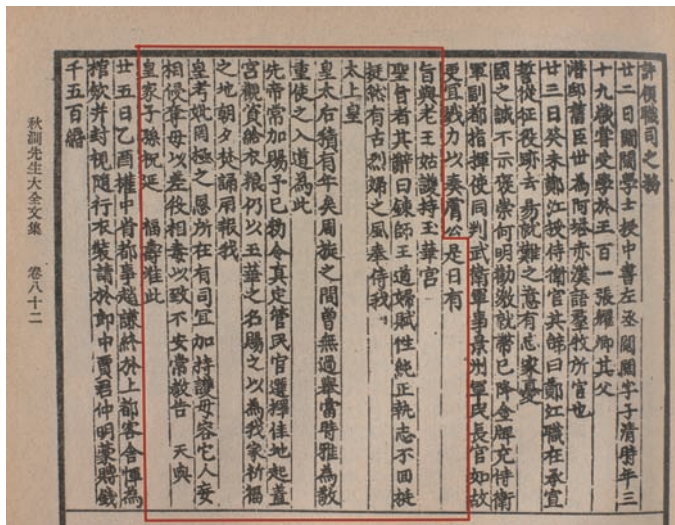 許領職司之勑
廿二日闊闊學士授中書左丞闊闊字子清時年三
十九歲嘗受學於王百一張耀卿其父
潛邸舊臣世為阿塔赤漢語羣牧所官也
廿三日癸未鄭江授侍衛官其辭曰鄭江職在承宣
誓從征役跡去易就難之意有忘家憂
國之誠不示褒崇何明勸激就帶已降金牌充侍衛
軍副都指揮使同判武衛軍事景州軍民長官如故
更宜戮力以奏膚公是日有
旨與老王姑護持玉華宮
聖旨者其辭曰鍊師王道婦賦性純正執志不回挺
挺然有古烈婦之風奉侍我
太上皇
皇太后積有年矣周旋之間曾無過舉當時雅為敬
重使之入道為此
先帝常加賜予已勑令真定管民官選擇佳地起蓋
宮觀資給衣粮仍以玉華之名賜之以為我家祈福
之地朝夕焚誦用報我
皇考妣罔極之恩所在有司宜加持護毋容它人妄
相侵奪毋以差役相毒以致不安常教告　天與
皇家子孫祝延　福壽准此
廿五日乙酉權中省都事趙謙終於上都客舍惲為
棺欽并封視隨行衣裝請於郎中賈君仲明蒙賻錢
千五百緡
秋澗先生大全文集　卷八十二